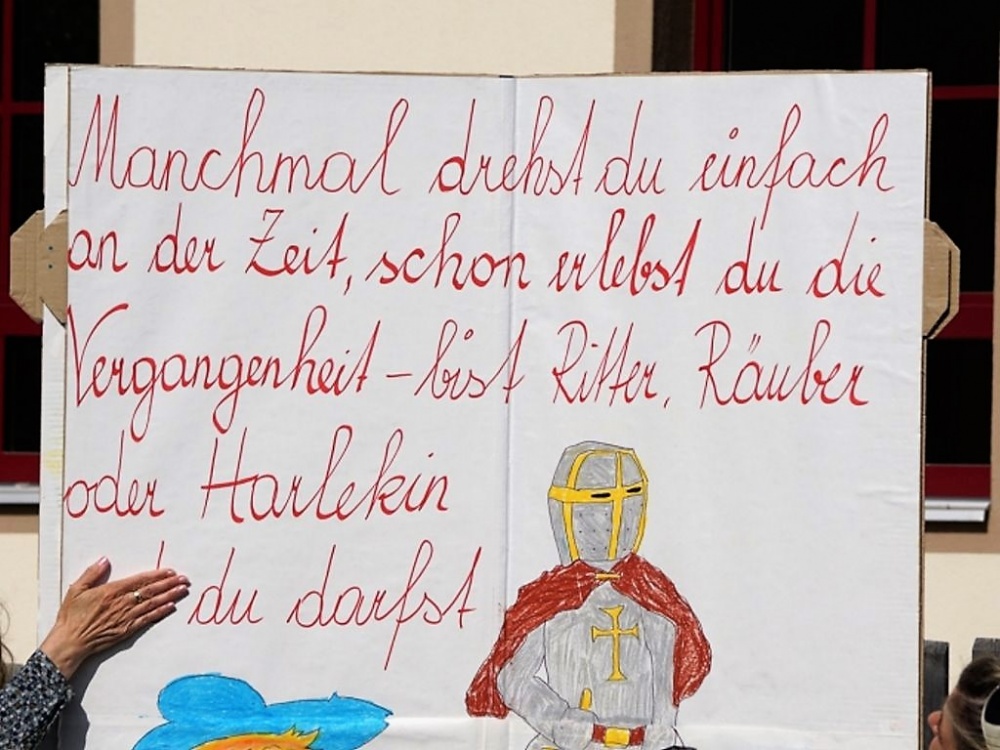 Manchmal drehst du einfach
an der Zeit, schon erlebst du die
Vergangenheit – bist Ritter, Räuber
oder Harlekin
du darfst